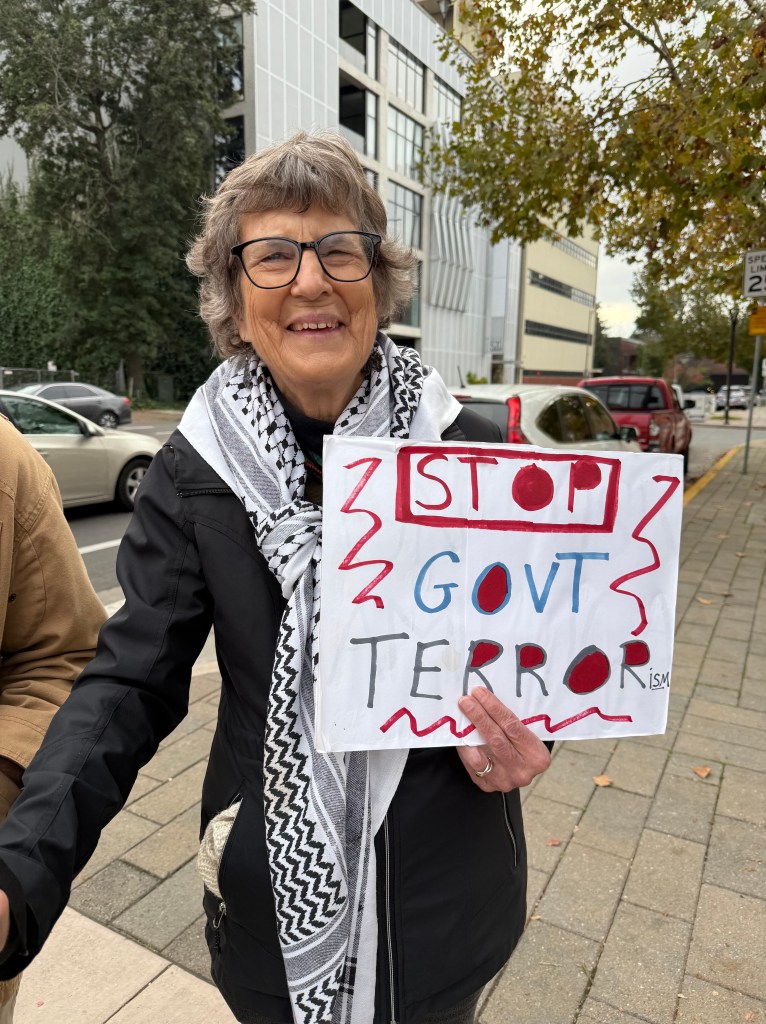 STOP
GOVT
TERRORiSM
25